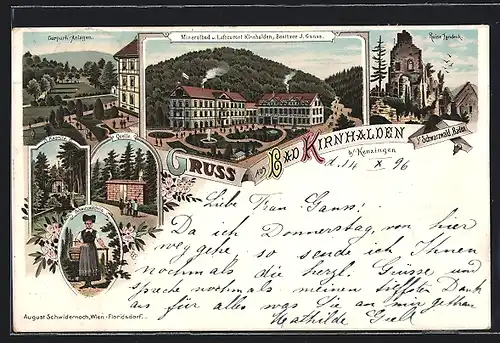 Curpark-Anlagen.
Mineralbad u. Luftcurort Kirnhalden, Besitzer J. Ganss.
Ruine Landeck
GRUSS AUS BAD KIRNHALDEN
b/ Kenzingen
i/ Schwarzwald, Baden
Kapelle
Quelle
d. 14 X 96
Liebe Frau Ganss!
Da ich Donnerstag, von hier
weg gehe, so sende ich Ihnen
nochmals die herzl. Grüsse und
spreche nochmals meinen tiefsten Dank
aus für alles was Sie an mir gethan
Mathilde
August Schwidernoch, Wien-Floridsdorf.